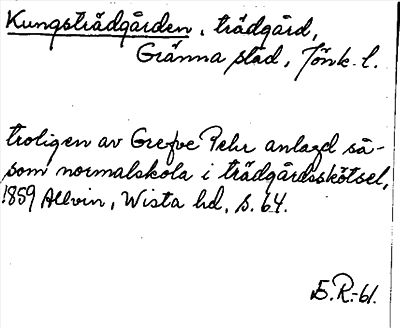 Kungsträdgården, trädgård,
Gränna stad, Jönk. l.
troligen av Grefve Pehr anlagd så-
som normalskola i trädgårdsskötsel,
1859 Allvin, Wista hd, s. 64.
E.R.-61.